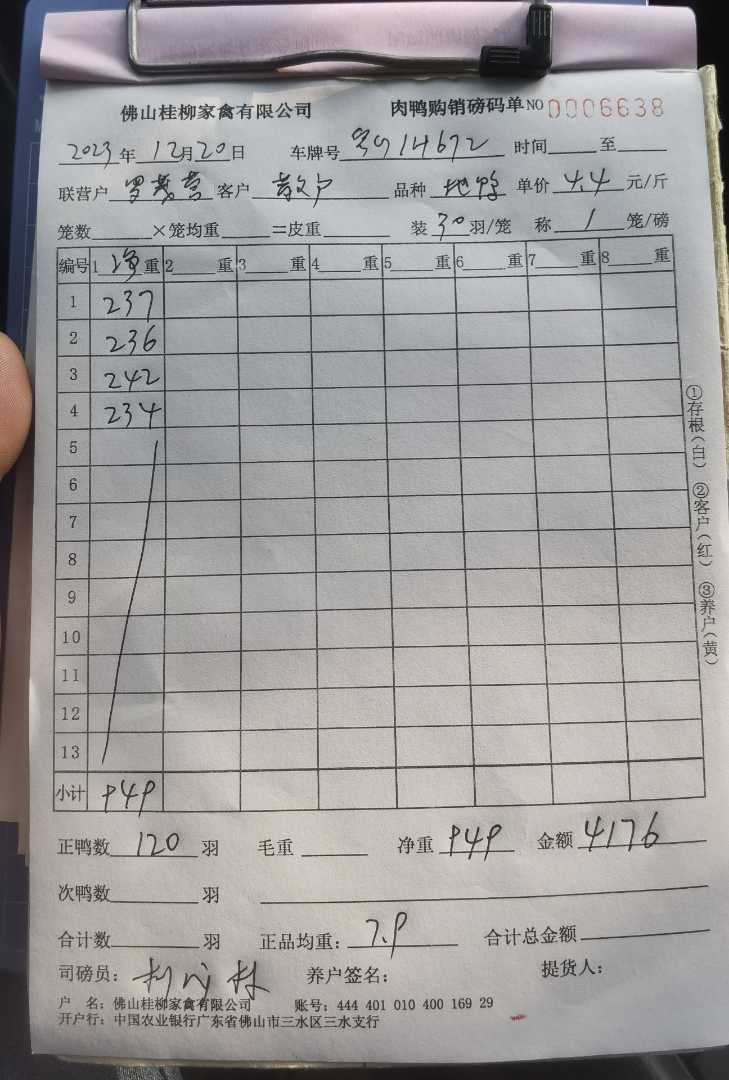 佛山桂柳家禽有限公司 肉鸭购销磅码单 NO 0006638
2023年12月20日 车牌号 14672 时间 至
联营户 罗茂营 客户 散户 品种 地鸭 单价 4.4 元/斤
笼数 ×笼均重 =皮重 装 30 羽/笼 称 1 笼/磅
编号 1 净重 2 重 3 重 4 重 5 重 6 重 7 重 8 重
1 237
2 236
3 242
4 234
5
6
7
8
9
10
11
12
13
小计 949
①存根(白) ②客户(红) ③养户(黄)
正鸭数 120 羽 毛重 净重 949 金额 4176
次鸭数 羽
合计数 羽 正品均重: 7.9 合计总金额
司磅员: 养户签名: 提货人:
户 名: 佛山桂柳家禽有限公司 账号: 444 401 010 400 169 29
开户行: 中国农业银行广东省佛山市三水区三水支行